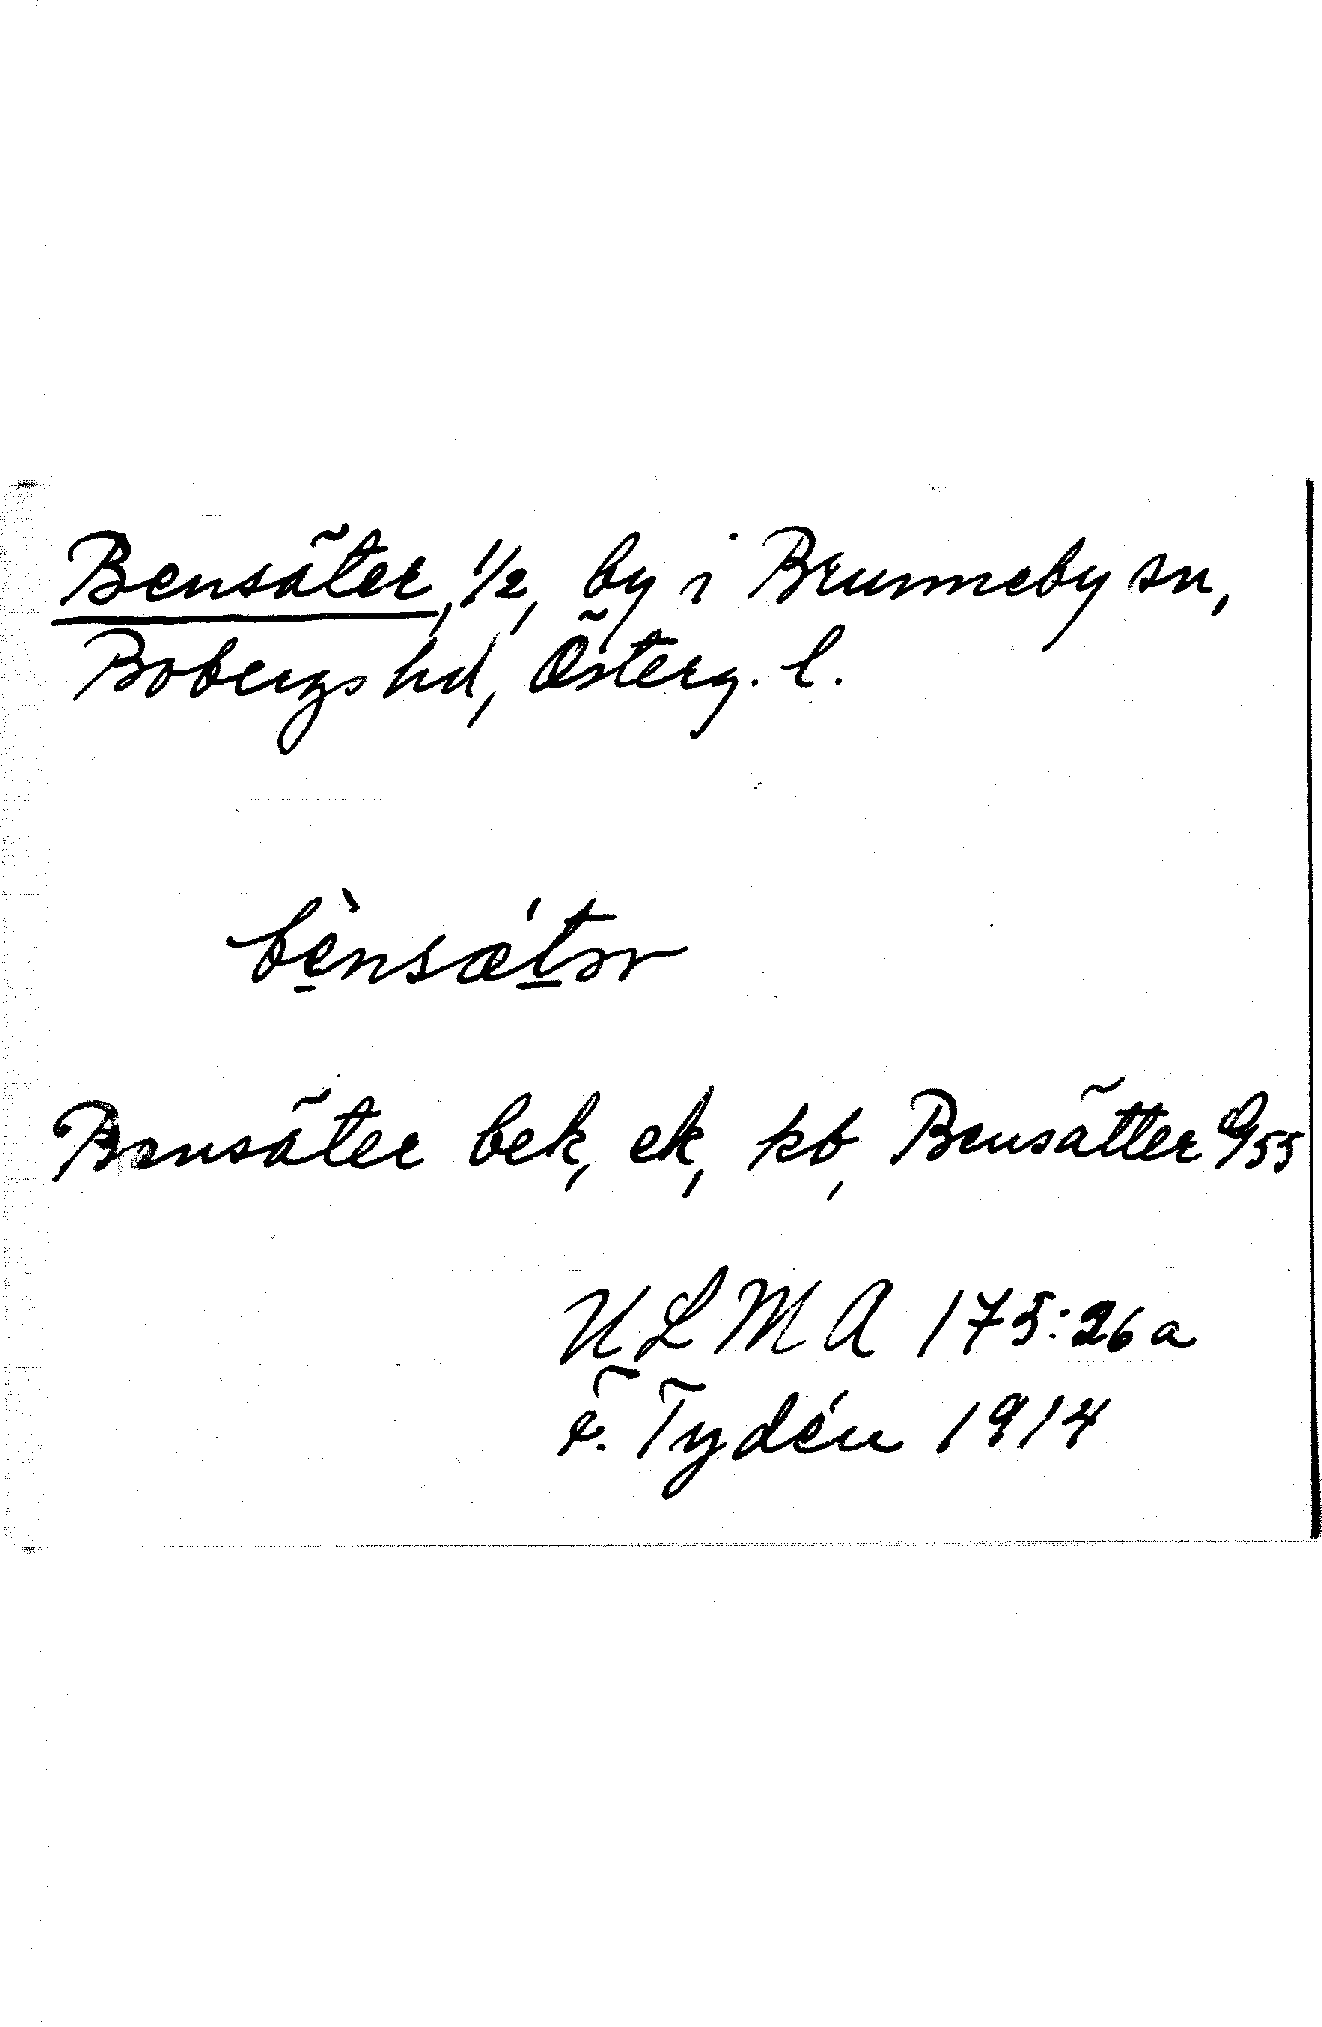 Bensäter, 1/2, by i Brunneby sn,
Bobergs hd, Österg. l.
bènsǽtər
Bensäter bek, ek, kb, Bensätter G/55
ULMA 175:26a
F. Tydén 1914